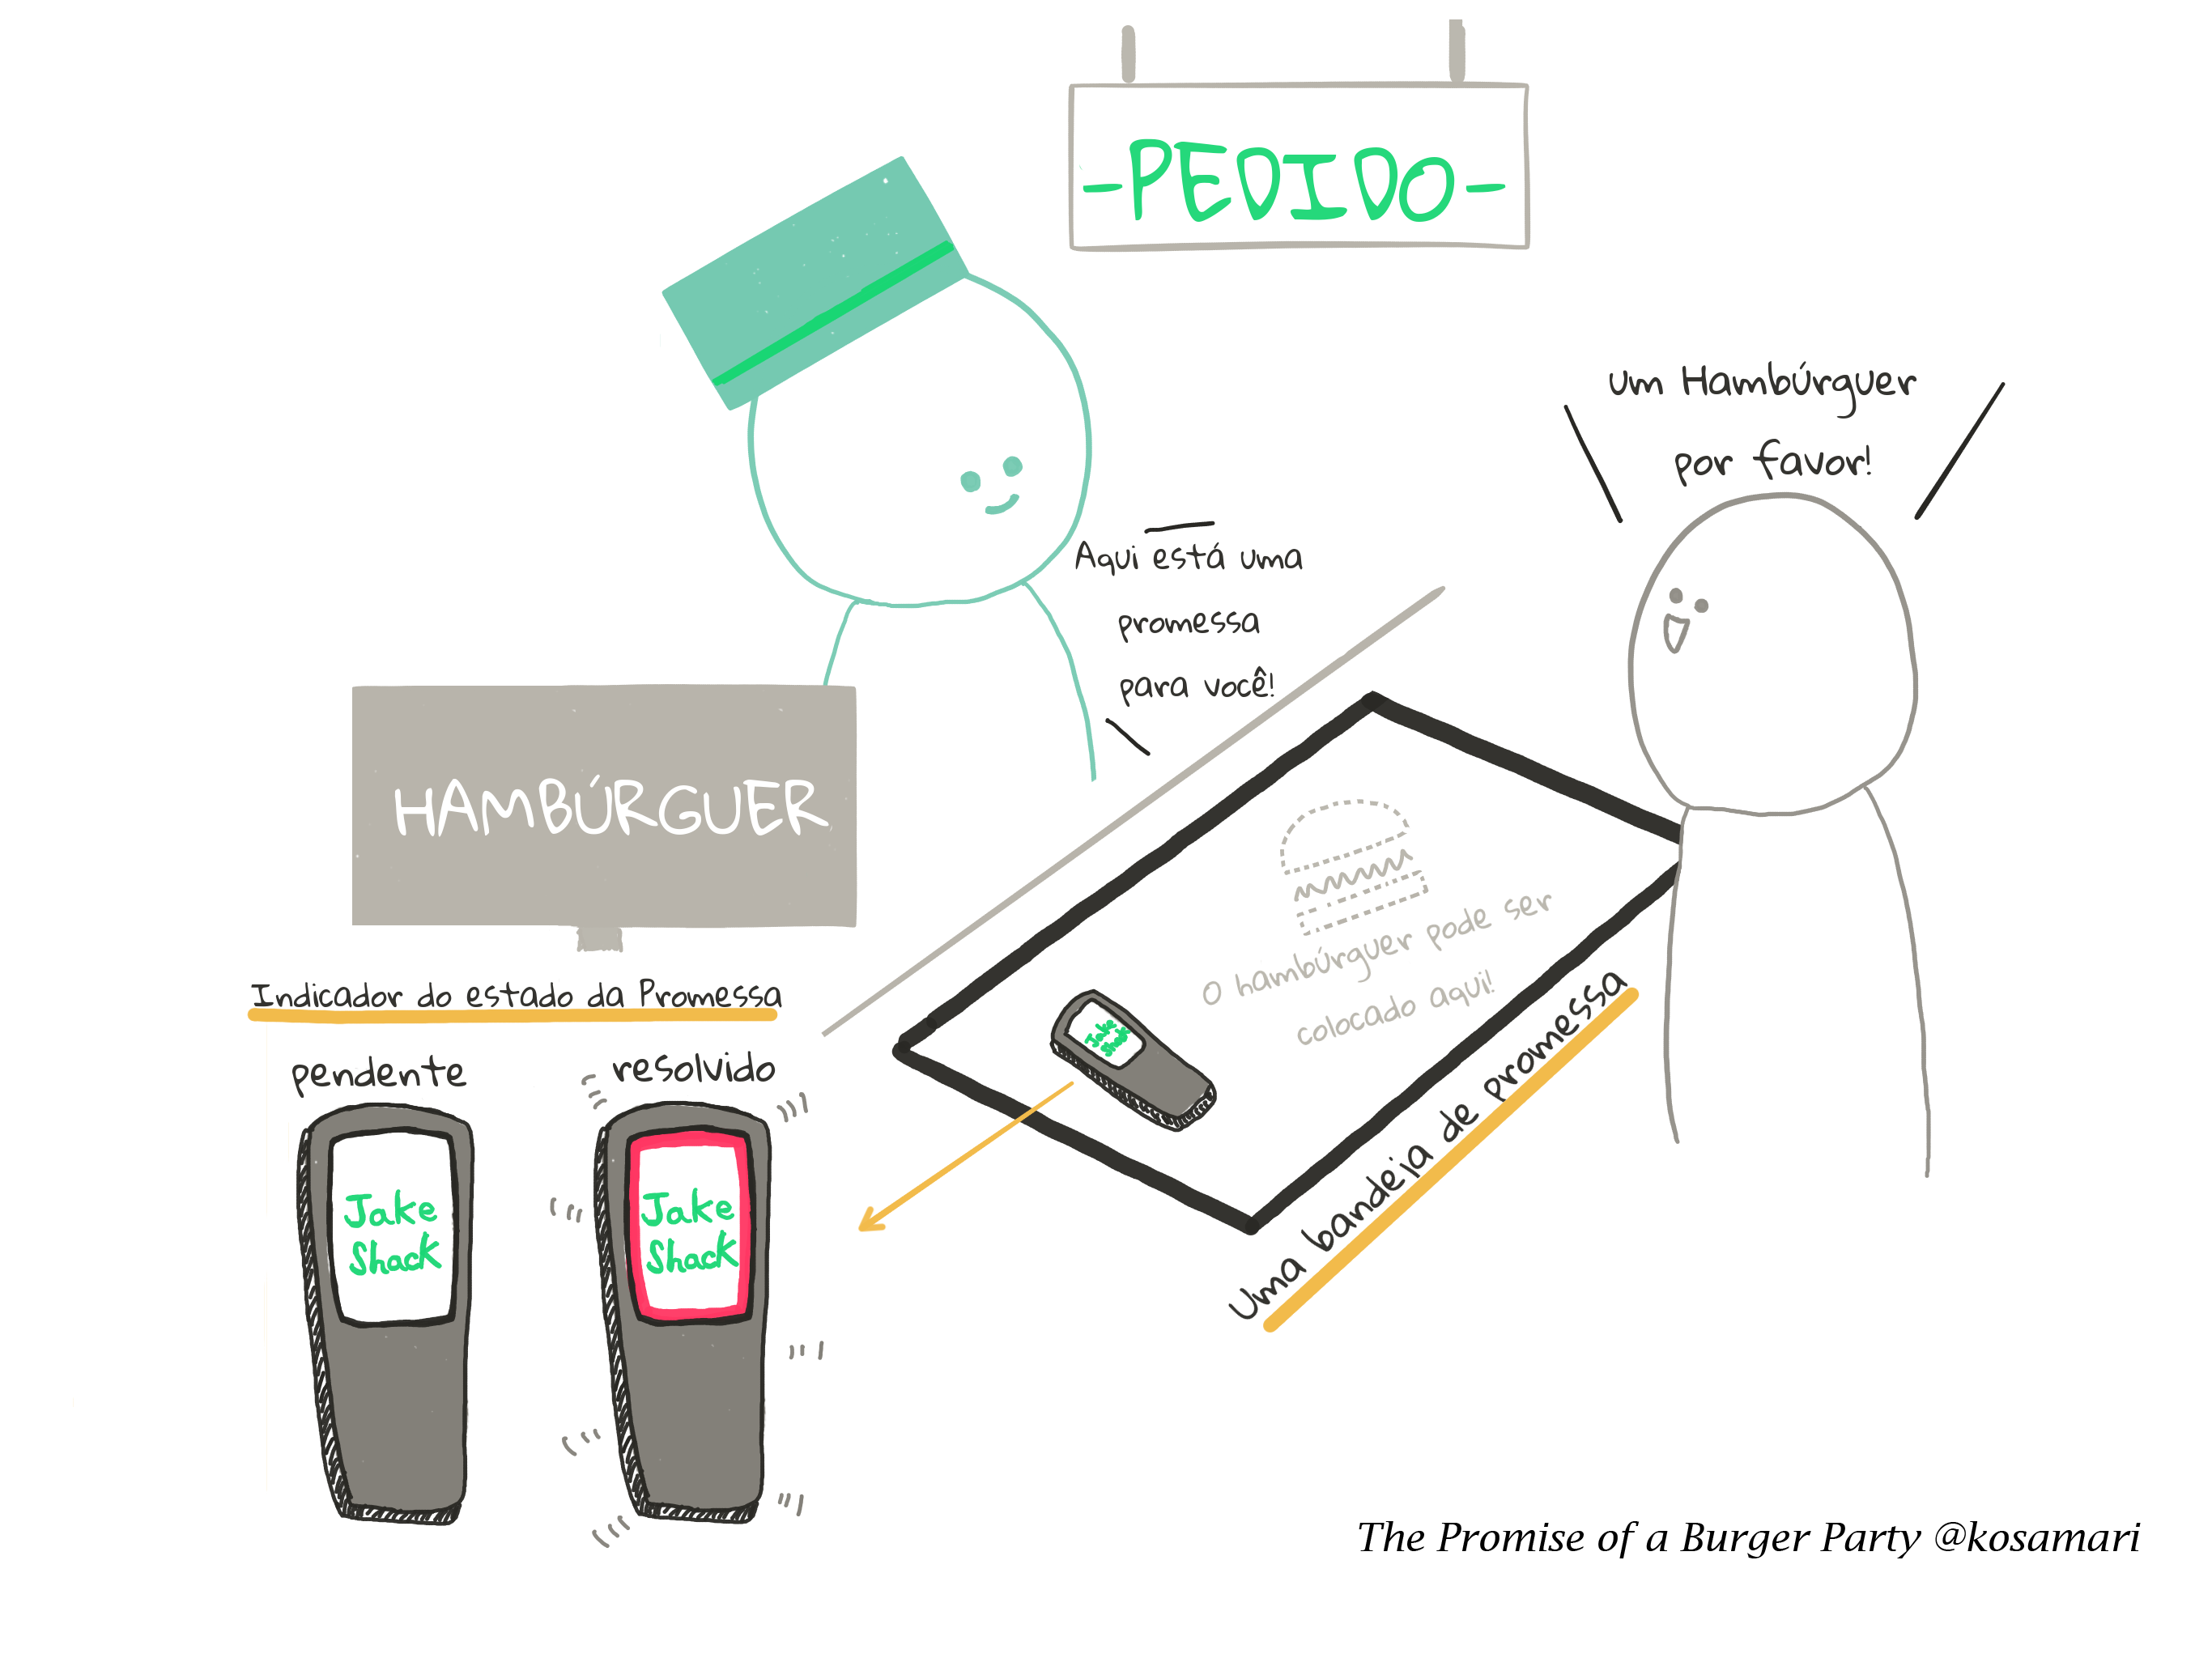 -PEDIDO-
um Hambúrguer
por favor!
Aqui está uma
promessa
para você!
HAMBÚRGUER
O hambúrguer pode ser
colocado aqui!
Jake
Shack
Uma bandeja de promessa
Indicador do estado da Promessa
pendente
resolvido
Jake
Shack
Jake
Shack
The Promise of a Burger Party @kosamari